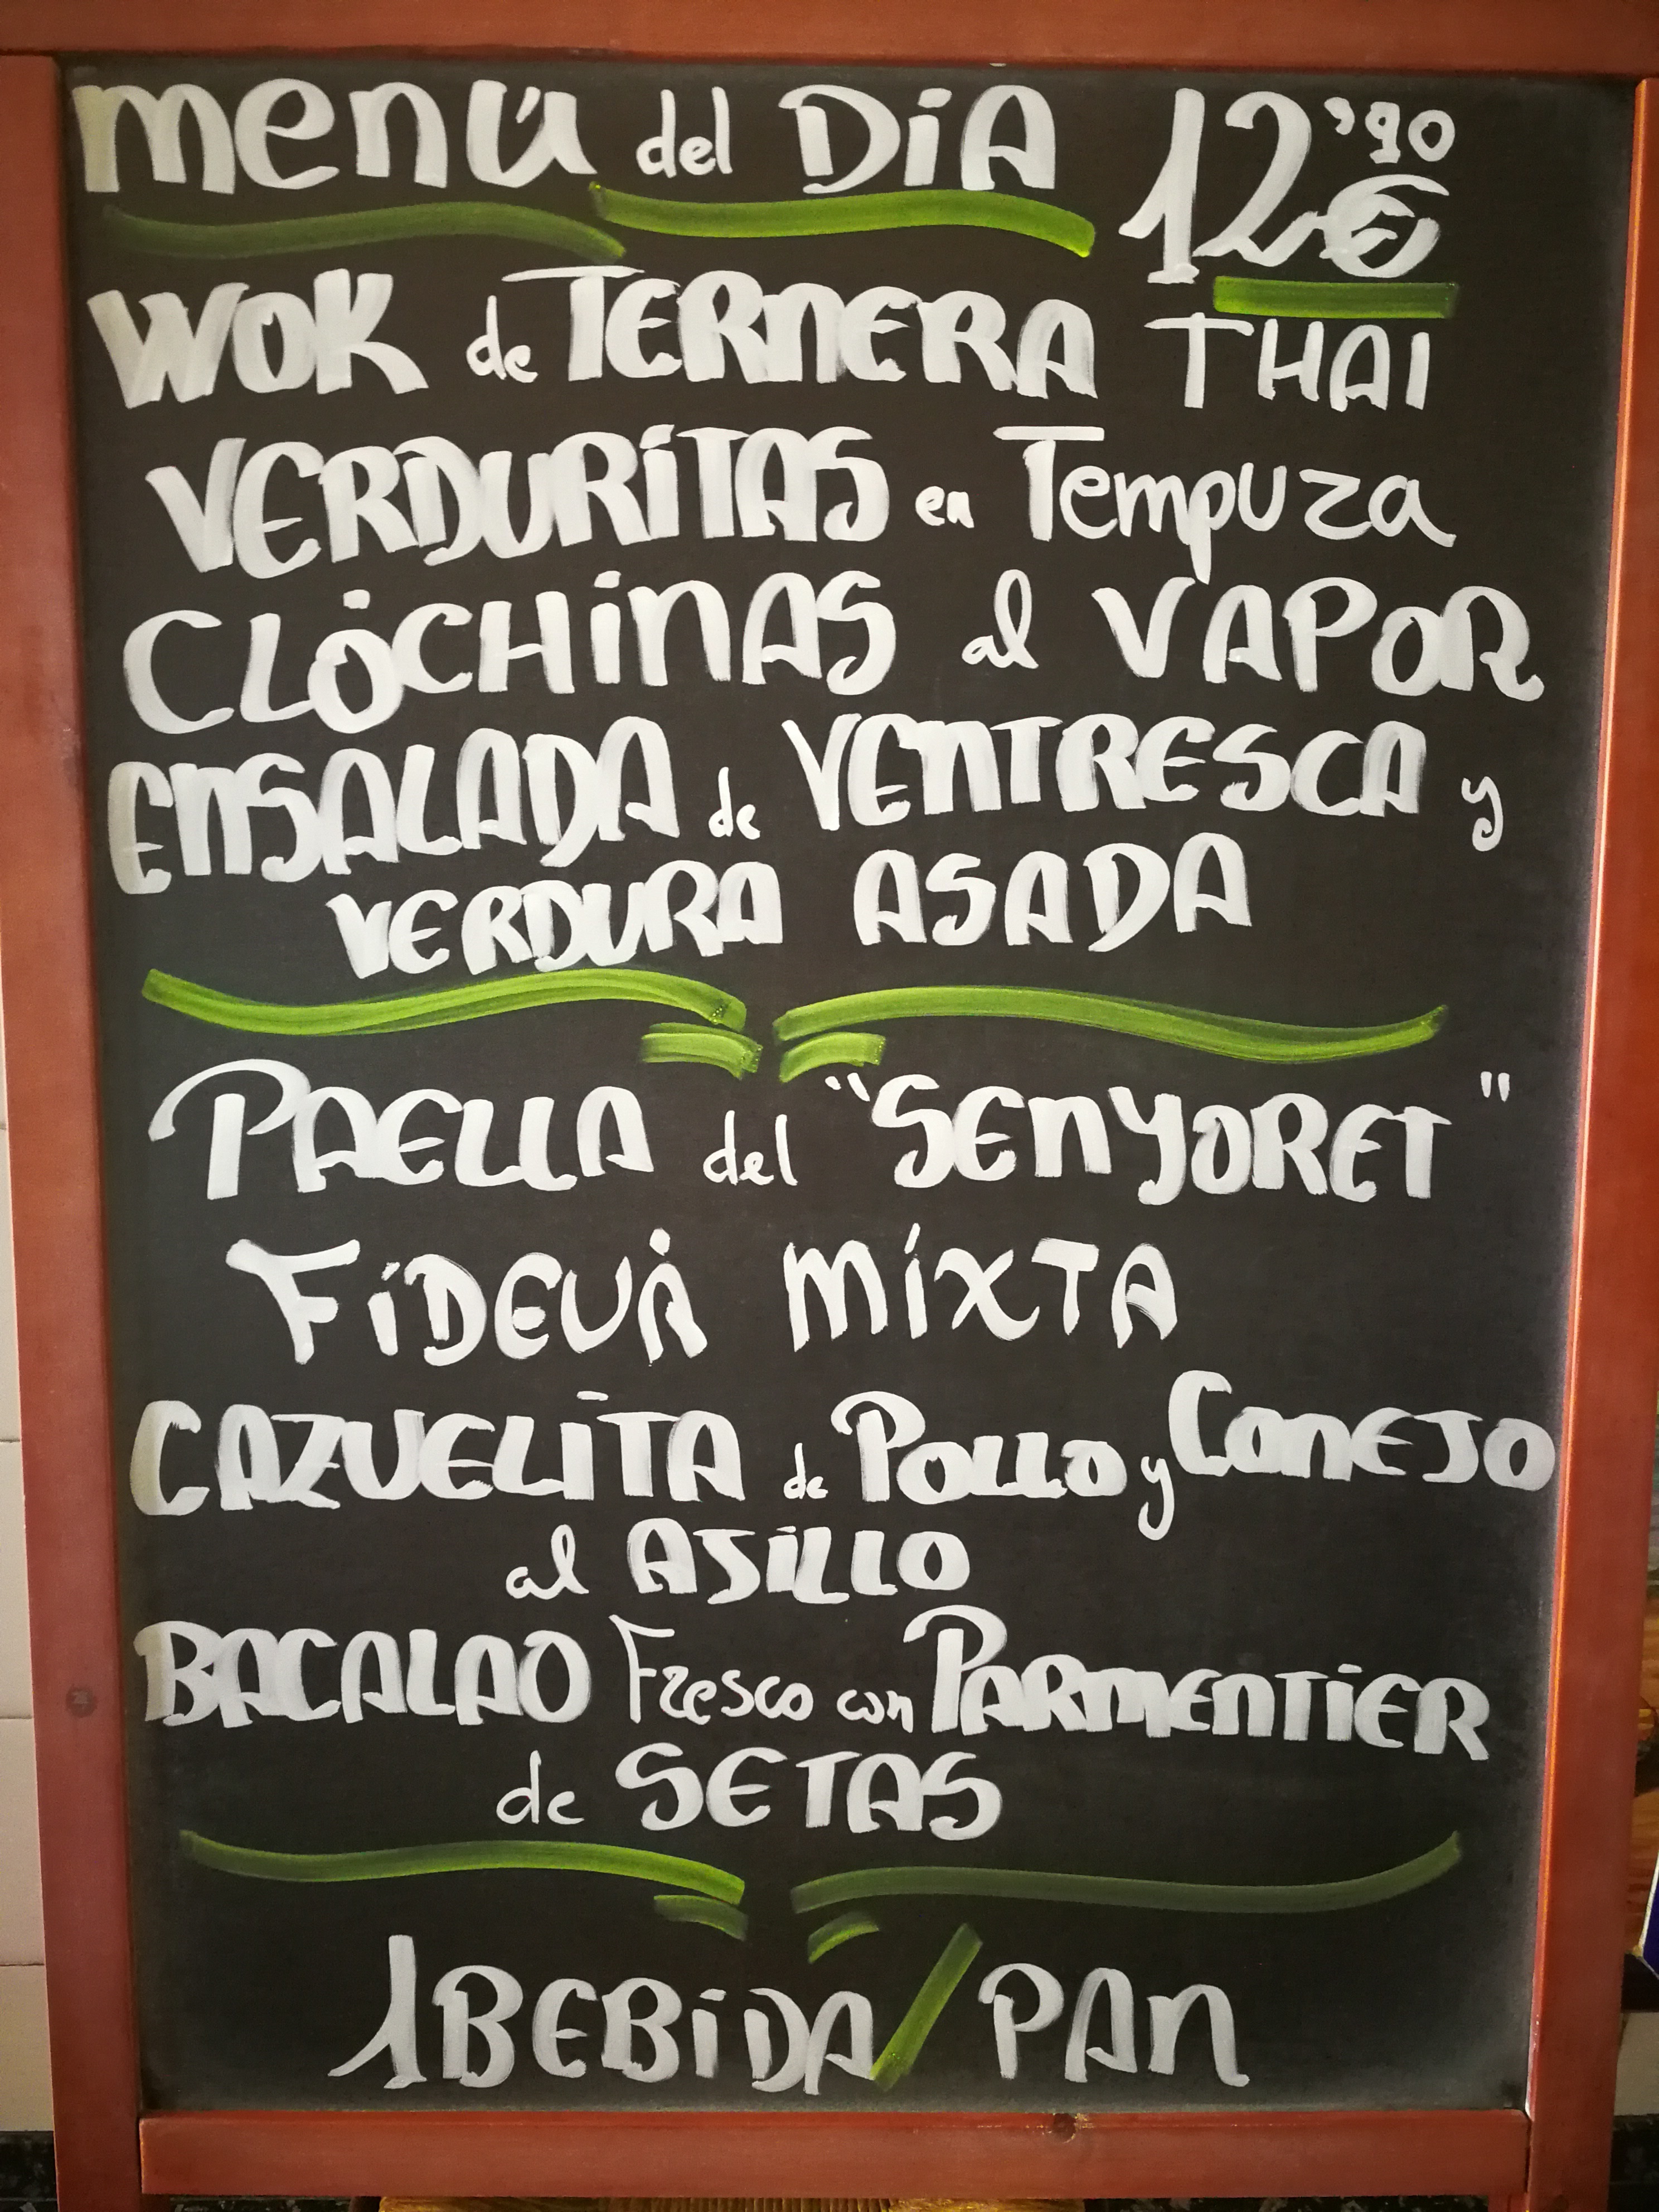 menú del DíA 12'90€
WOK de TERNERA THAI
VERDURITAS en Tempura
CLÓCHINAS al VAPOR
ENSALADA de VENTRESCA y
VERDURA ASADA
PAELLA del "SENYORET"
FIDEUÀ MIXTA
CAZUELITA de POLLO y CONEJO
al AJILLO
BACALAO Fresco con PARMENTIER
de SETAS
1 BEBIDA / PAN